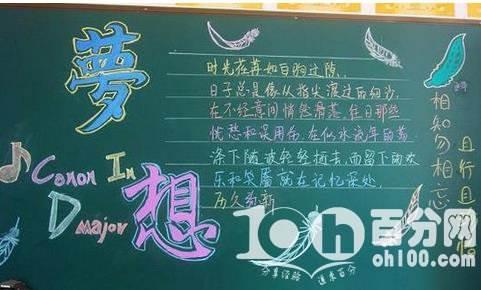 夢想
Canon In
D major
时光荏苒如白驹过隙、
日子总是像从指尖渡过的细沙
在不经意间悄然滑落。往日那些
忧愁和误用伤,在似水流年的荡
涤下随波轻轻逝去,而留下的欢
乐和笑靥就在记忆深处,
历久弥新
相知勿相忘
且行且珍惜
百分网
oh100.com
分享经验 道来百分